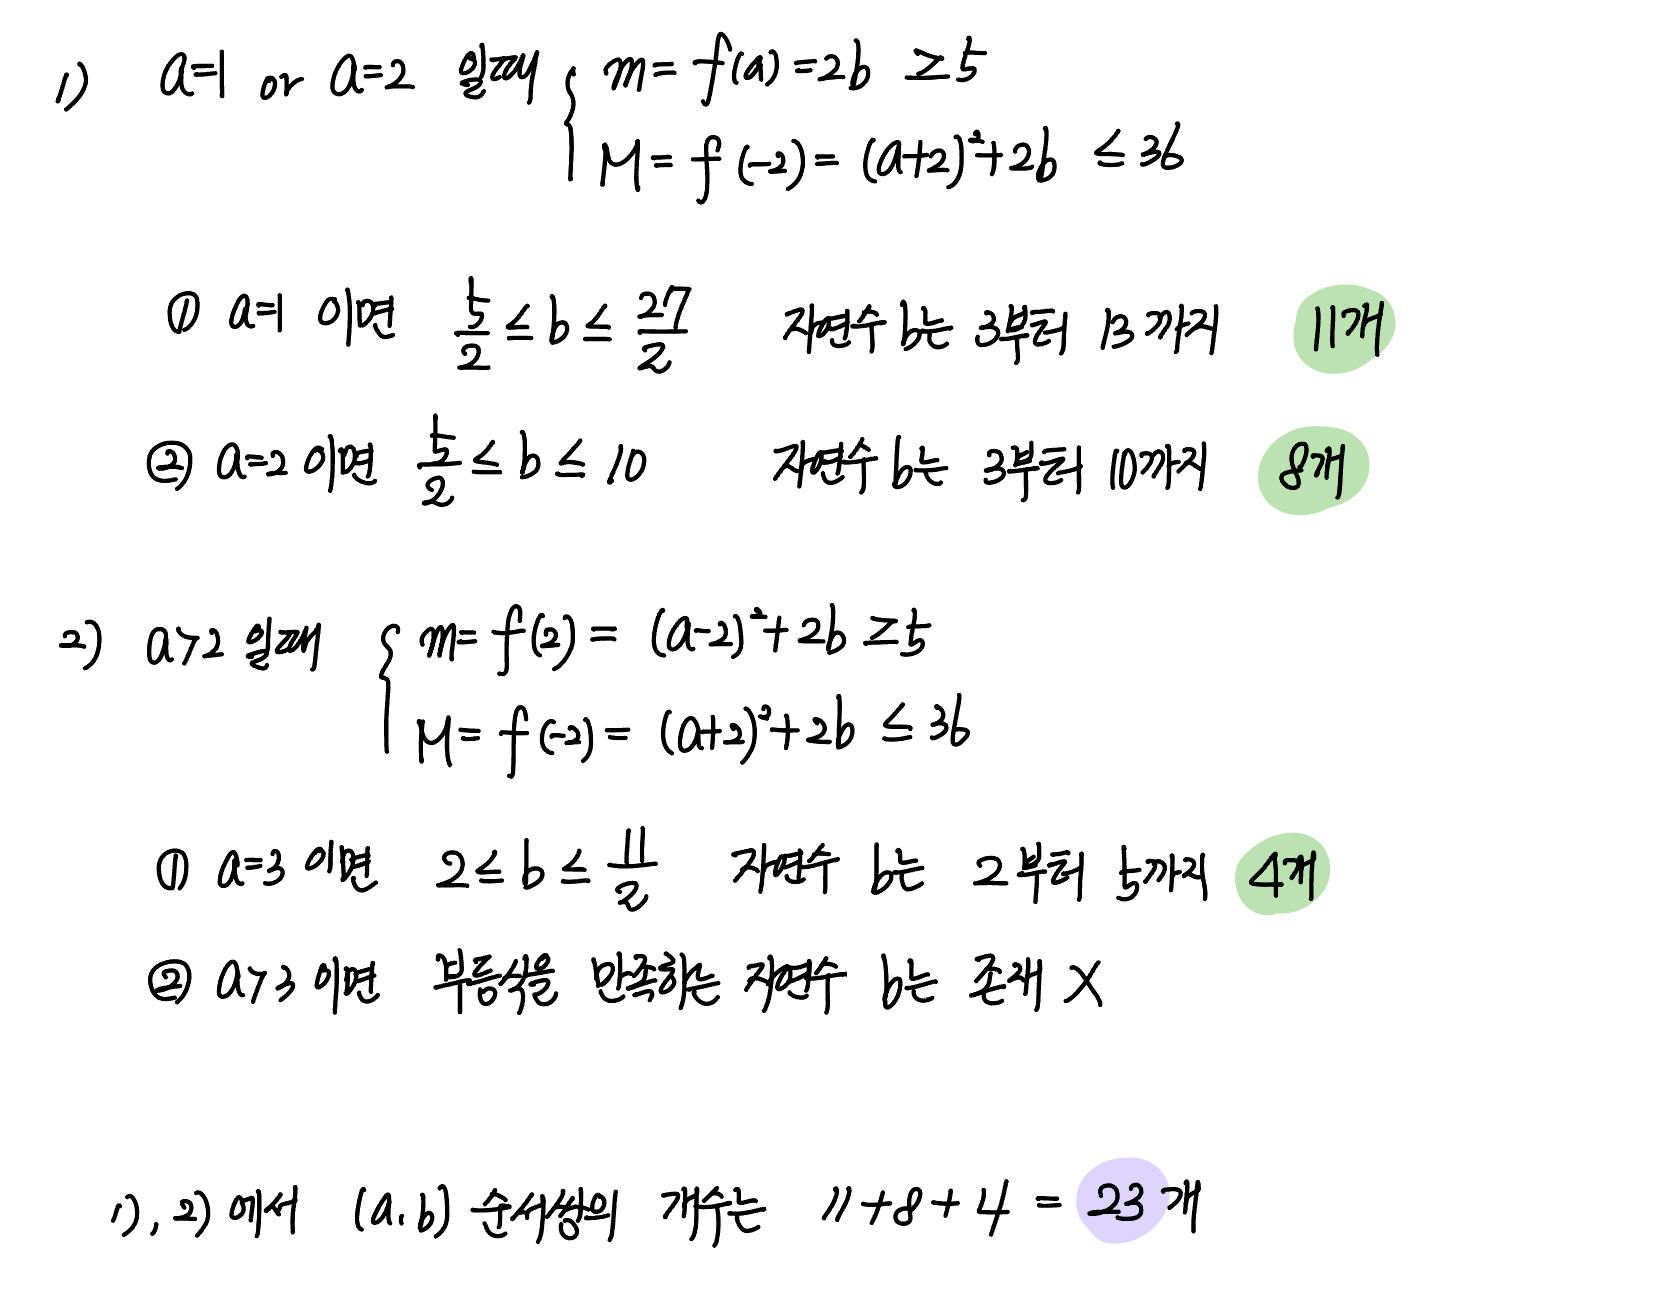 1) a=1 or a=2 일때 { m = f(a) = 2b ≥5
M = f(-2) = (a+2)²+2b ≤ 36
① a=1 이면 5/2 ≤ b ≤ 27/2 자연수 b는 3부터 13까지 11개
② a=2 이면 5/2 ≤ b ≤ 10 자연수 b는 3부터 10까지 8개
2) a>2 일때 { m= f(2) = (a-2)²+2b ≥5
M= f(-2) = (a+2)²+2b ≤ 36
① a=3 이면 2 ≤ b ≤ 11/2 자연수 b는 2부터 5까지 4개
② a>3 이면 부등식을 만족하는 자연수 b는 존재 X
1), 2) 에서 (a.b) 순서쌍의 개수는 11+8+4 = 23개